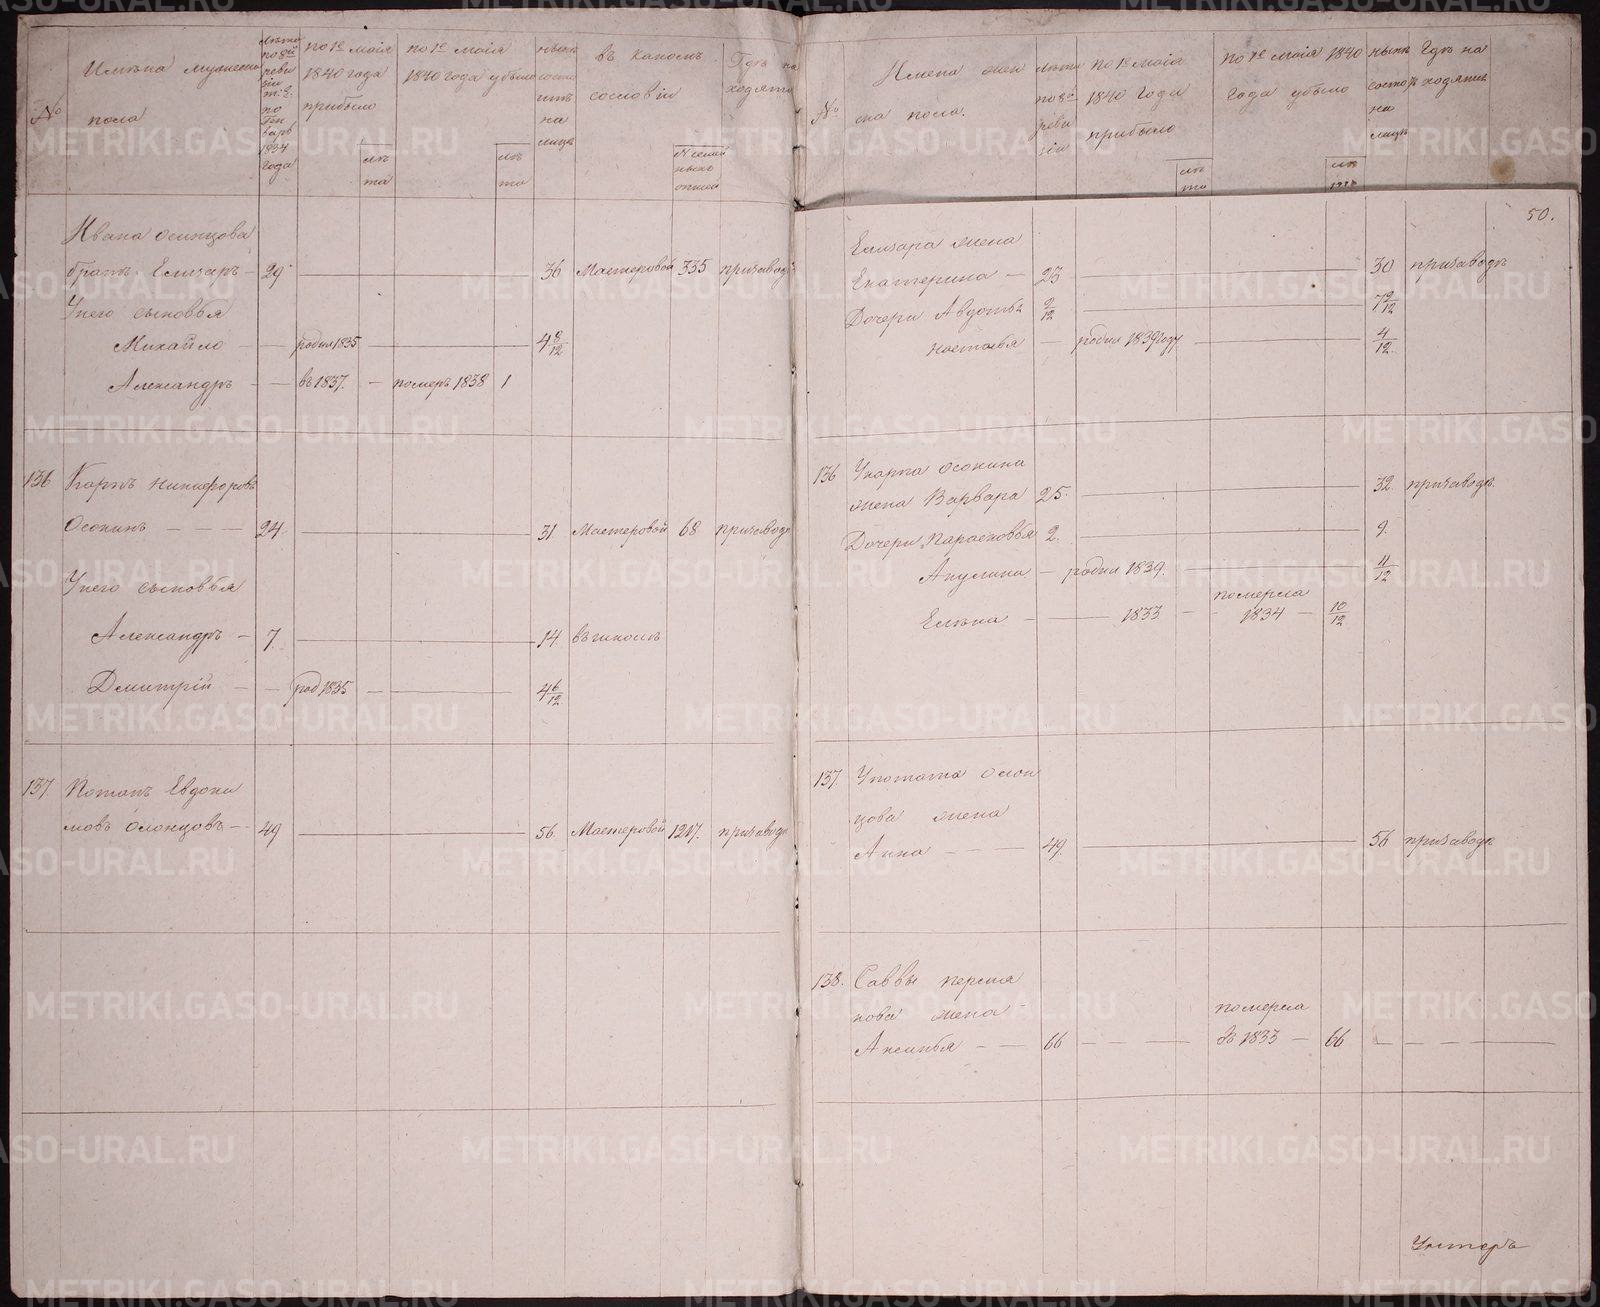 №
Имѣна мужеска
пола
Лѣта
по 8й
реви
зіи
т. е.
по
Ген
варь
1834
года
по 1е маія
1840 года
прибыло
лѣ
та
по 1е маія
1840 года убыло
лѣ
та
нынѣ
состо
итъ
на
лицѣ
въ какомъ
сословіи
№ семей
ныхъ
описей
Гдѣ на
ходятся
Ивана Осинцова
братъ Елизаръ 29 36 Мастеровой 335 призаводѣ
Унего сыновья
Михайло родил 1835 4 8/12
Александръ въ 1837. померъ 1838 1
136 Карпъ Никифоровъ
Осокинъ 24 31 Мастеровой 68 призаводѣ
Унего сыновья
Александръ 7 14 въ школѣ
Дмитрій род 1835 4 6/12
137. Потапъ Евдоки
мовъ Олонцовъ 49 56. Мастеровой 1217. призаводѣ
№
Имена жен
ска пола.
Лѣта
по 8й
реви
зіи
по 1е маія
1840 года
прибыло
лѣ
та
по 1е маія 1840
года убыло
лѣ
нынѣ
состоя
на
лицѣ
Гдѣ на
ходятся
50.
Елизара жена
Екатерина 23 30 призаводѣ
Дочери Авдотья 2/12 7 2/12
Настасья родил 1839 году 4/12
136 Укарпа Осокина
жена Варвара 25. 32. призаводѣ
Дочери Парасковья 2. 9.
Акулина родил 1839. 4/12
Елѣна 1833 померла 1834 10/12
137. Употапа Олон
цова жена
Анна 49. 56 призаводѣ
138. Саввы Перша
кова жена
Аксинья 66 померла въ 1833 66
Унтеръ
METRIKI.GASO-URAL.RU